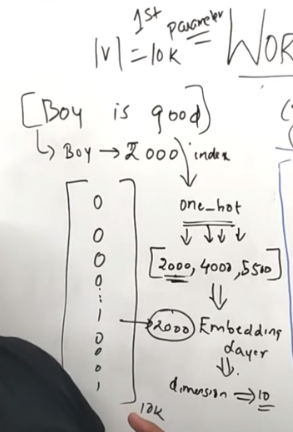 1st parameter
|V| = 10K
WOR
[Boy is good]
↳ Boy → 2000 index
one_hot
[2000, 4000, 5500]
0
0
0
0
⋮
1
0
0
0
1
10K
→ 2000 Embedding
Layer
dimension ⇒ 10